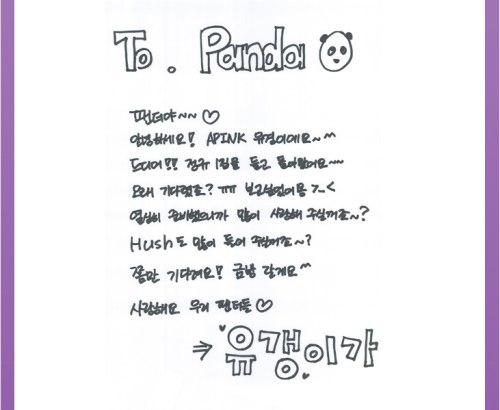 To. Panda
팬더야~~ ♡
안녕하세요! APINK 유경이에요~^^
드디어!! 정규 1집을 들고 돌아왔어요~~
오래 기다렸죠? ㅠㅠ 보고싶었어용 >_<
열심히 준비했으니까 많이 사랑해 주실꺼죠~?
Hush도 많이 들어 주실꺼죠~?
쫌만 기다려요! 금방 갈게요^^
사랑해요 우리 팬더들 ♡
⇒ 유갱이가